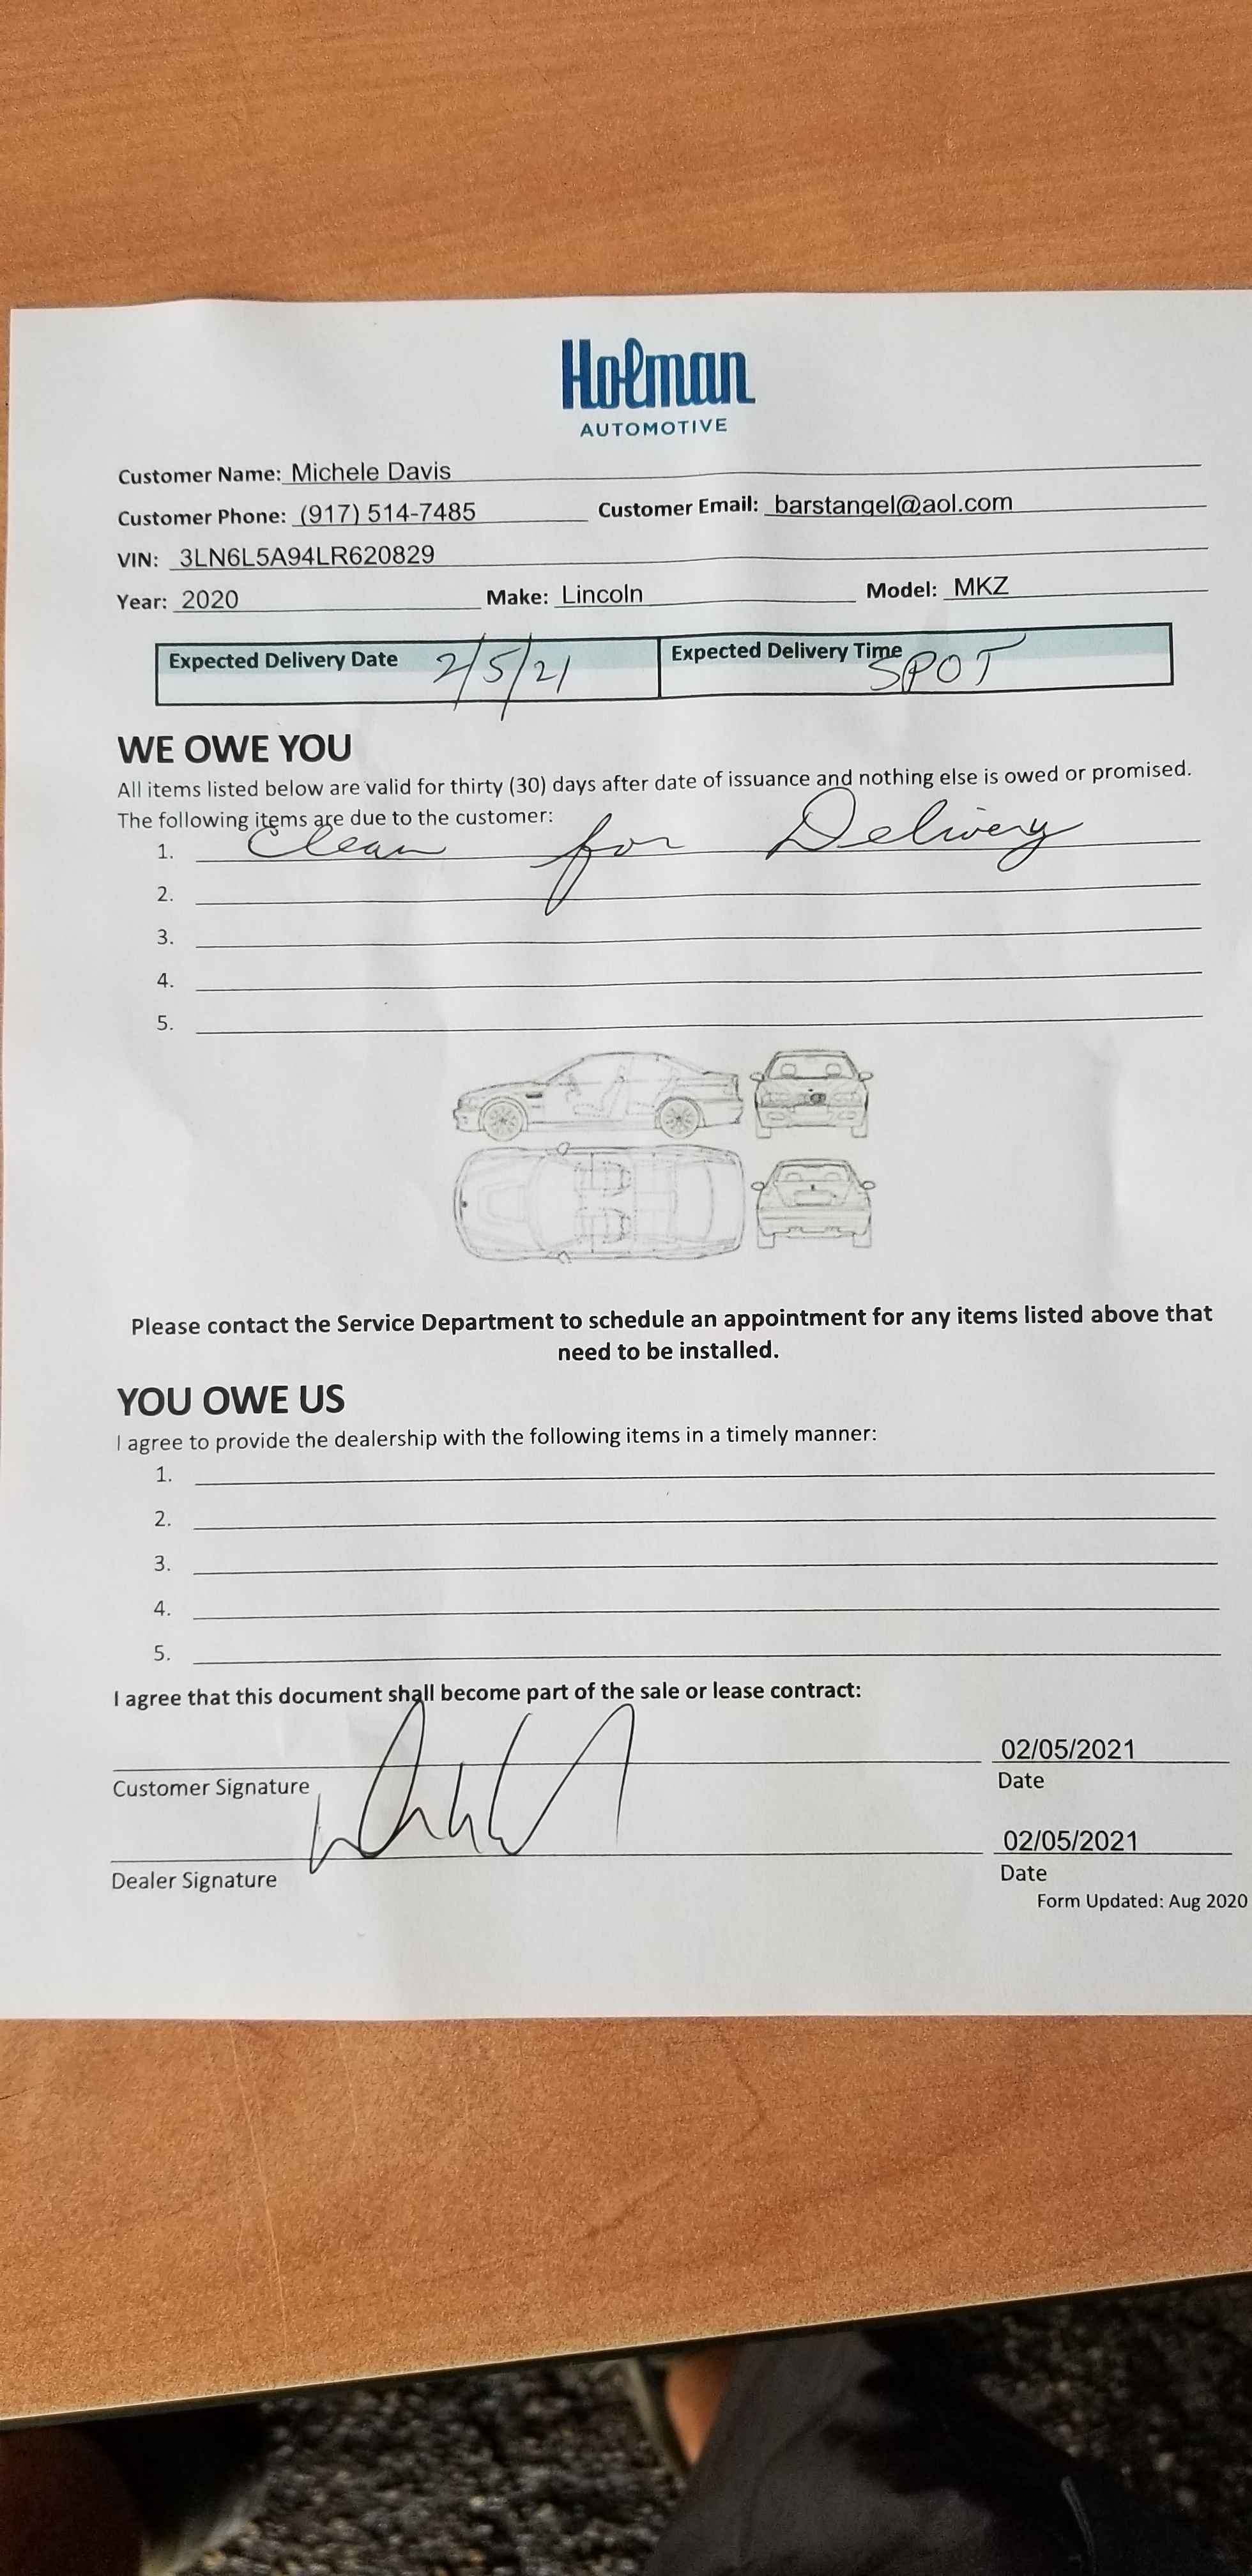 Holman
AUTOMOTIVE
Customer Name: Michele Davis
Customer Phone: (917) 514-7485 Customer Email: barstangel@aol.com
VIN: 3LN6L5A94LR620829
Year: 2020 Make: Lincoln Model: MKZ
Expected Delivery Date 2/5/21 Expected Delivery Time SPOT
WE OWE YOU
All items listed below are valid for thirty (30) days after date of issuance and nothing else is owed or promised.
The following items are due to the customer:
1. Clean for Delivery
2.
3.
4.
5.
Please contact the Service Department to schedule an appointment for any items listed above that
need to be installed.
YOU OWE US
I agree to provide the dealership with the following items in a timely manner:
1.
2.
3.
4.
5.
I agree that this document shall become part of the sale or lease contract:
02/05/2021
Customer Signature Date
02/05/2021
Dealer Signature Date
Form Updated: Aug 2020